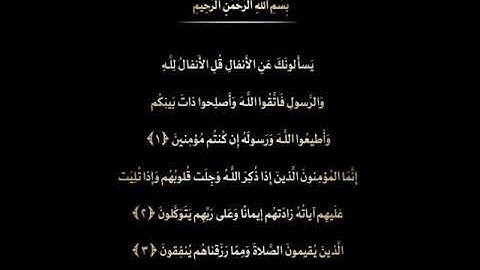 بِسْمِ اللَّهِ الرَّحْمَنِ الرَّحِيمِ
يَسأَلونَكَ عَنِ الأَنفالِ قُلِ الأَنفالُ لِلَّهِ
وَالرَّسولِ فَاتَّقُوا اللَّهَ وَأَصلِحوا ذاتَ بَينِكُم
وَأَطيعُوا اللَّهَ وَرَسولَهُ إِن كُنتُم مُؤمِنينَ ﴿١﴾
إِنَّمَا المُؤمِنونَ الَّذينَ إِذا ذُكِرَ اللَّهُ وَجِلَت قُلوبُهُم وَإِذا تُلِيَت
عَلَيهِم آياتُهُ زادَتهُم إيمانًا وَعَلى رَبِّهِم يَتَوَكَّلونَ ﴿٢﴾
الَّذينَ يُقيمونَ الصَّلاةَ وَمِمّا رَزَقناهُم يُنفِقونَ ﴿٣﴾